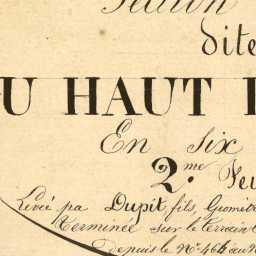 Section
dite
U HAUT
En Six
2.me Feu
Levée pa Dupit fils, Géomètr
Terminée sur le terrain
depuis le No. 464 au No